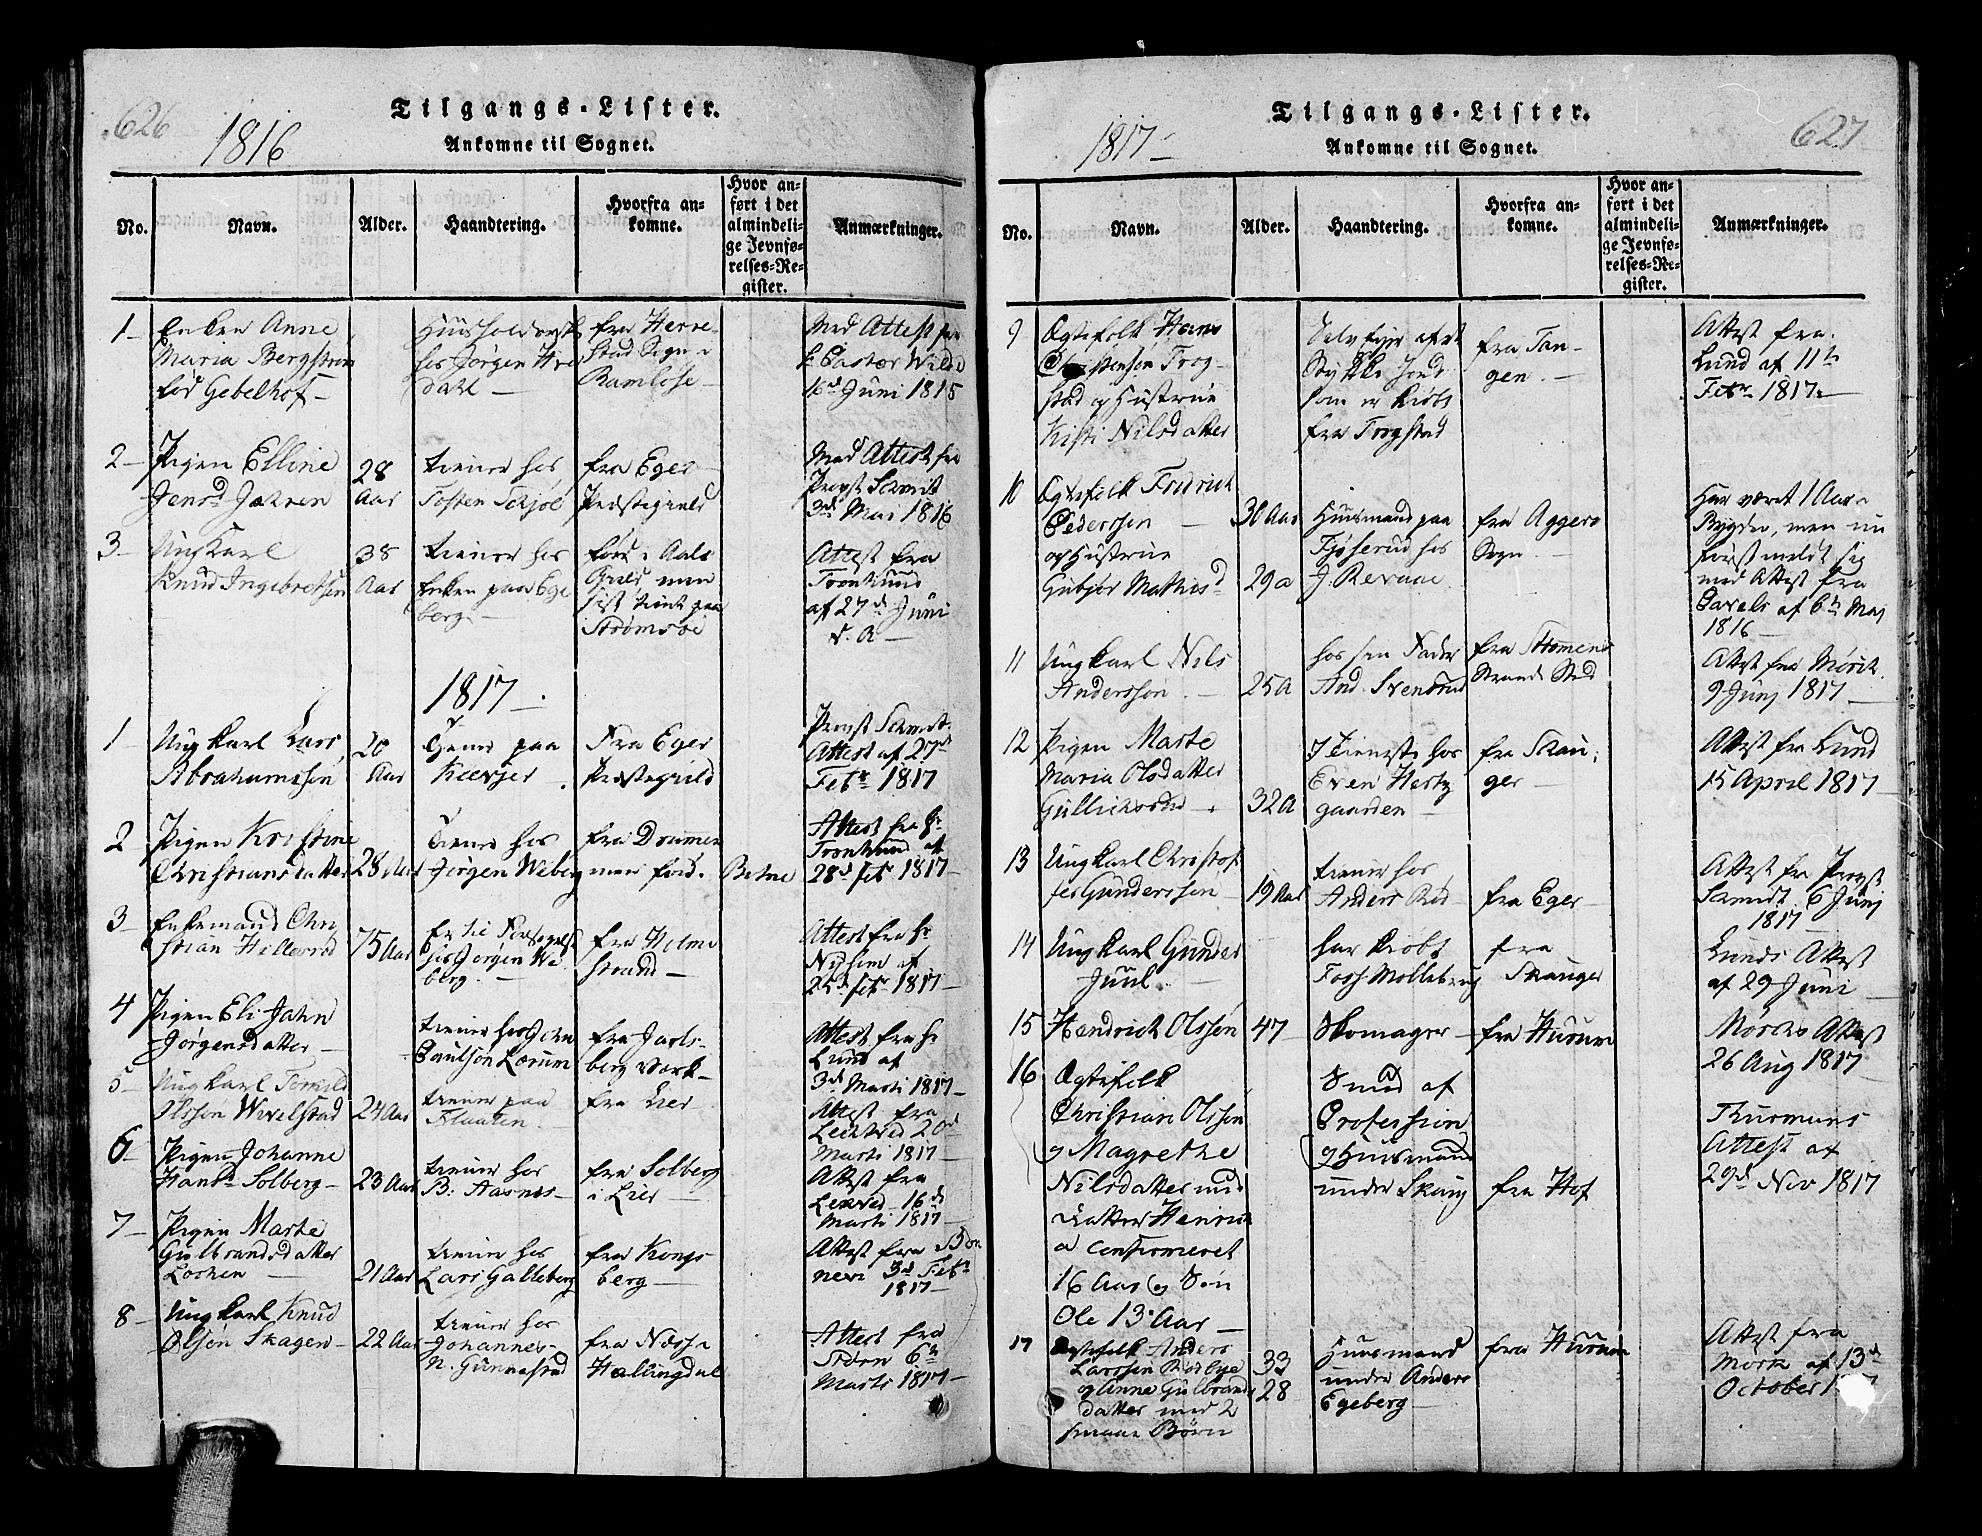 626
1816
Tilgangs-Lister.
Ankomne til Sognet.
No.
Navn.
Alder.
Haandtering.
Hvorfra an-
komne.
Hvor an-
ført i det
almindeli-
ge Jevnfø-
relses-Re-
gister.
Anmærkninger.
1 -
Enken Anne
Maria Bergstrøm
fød Gebelhof -
hos Jørgen
fra Herre-
Stad Sogn i
Bamløse -
Med Attest fra
Pastor
16d Juni 1815
2 -
Pigen Elline
Jensd Jahren
28
Aar
tiener hos
Tosten
fra Eger
Præstegield
Med Attest fra
Provst Schmidt
3d Mai 1816
3 -
Ung Karl
Knud Ingebretsen
38
Aar
tiener hos
Enken paa Ege
berg -
fød i Aals
Gield, men
sist tient paa
Strømsøe
Attest fra
Tronhuud
af 27d Juni
d. A -
1817 -
1
Ung Karl Lars
Abrahamssøn
20
Aar
Tiener paa
fra Eger
Præstegield
Provst Schmidt
Attest af 27d
Febr 1817
2
Pigen Kristine
Christiansdatter
28 Aar
Tiener hos
Jørgen Wiberg
fra Drammen
men fød i
Attest fra Hr
Tronhuud af
28d febr 1817 -
3 -
Enkemand Chri
stian Hillerød
75 Aar
hos Jørgen Wi
berg -
fra Holme
strand -
Attest fra Hr
af
25d febr 1817 -
4
Pigen Eli Jahn
Jørgensdatter -
tiener hos John
Paulsøn Lørum
fra Jarls-
berg Værk -
Attest fra Hr
Lund af
3d Marti 1817 -
5 -
Ung Karl
Olssøn Wivelstad
24 Aar
tiener paa
Flaaten -
fra Lier
Attest fra
20d
Marti 1817 -
6 -
Pigen Johanne
Hansd Solberg -
23 Aar
tiener hos
B: Aasnes -
fra Solberg
i Lier -
Attest fra
16d
Marti 1817 -
7 -
Pigen Marte
Gulbrandsdatter
Lochen -
21 Aar
tiener hos
Lars Galleberg
fra Kongs
berg -
Attest fra
3d Febr
1817 -
8 -
Ung Karl Knud
Olsøn Skagen -
22 Aar
tiener hos
Johannes -
N. Gunnestad
fra Næss i
Hallingdal
Attest fra
6te
Marti 1817 -
1817 -
Tilgangs-Lister.
Ankomne til Sognet.
627
No.
Navn.
Alder.
Haandtering.
Hvorfra an-
komne.
Hvor an-
ført i det
almindeli-
ge Jevnfø-
relses-Re-
gister.
Anmærkninger.
9
Ægtefolk Hans
Christensøn Trog-
stad og Hustrue
Kisti Nilsdatter
Selvejer af et
Stykke Jord
som er kiøbt
fra Trogstad
fra Tan-
gen -
Attest fra
Lund af 11te
Febr 1817 -
10
Ægtefolk Fridrich
Pederssøn -
og Hustrue
Mathisd
30 Aar
29 a
Huusmand paa
Fjøserud hos
J. Revaae
fra Aggers
Sogn -
Har været 1 Aar i
Bygden, men nu
først meldt sig
med Attest fra
Pavels af 6te Maj
1816 -
11
Ung Karl Nils
Anderssøn -
25 A
hos sin Fader
And. Svensrud
fra Holmens
Strands Sted
Attest fra Mørch
9 Junj 1817 -
12
Pigen Marte
Maria Olsdatter
Gullichsrud -
32 A
I Tieneste hos
Even Hertz
gaarden -
fra Skau-
ger -
Attest fra Lund
15 April 1817 -
13
Ung Karl Christof
fer Gunderssøn -
19 Aar
tiener hos
Anders Rød -
fra Eger -
Attest fra Provst
Schmidt 6 Junj
1817 -
14
Ung Karl Gunder
Juul -
har kiøbt
Foss Møllebrug
fra
Skauger
Lunds Attest
af 29 Juni -
15
Hendrich Olssøn
47
Skomager -
fra Hurum
Mørchs Attest
26 Aug 1817 -
16
Ægtefolk
Christian Olssøn
og Magrethe
Nilsdatter med
Datter Henric
a Confirmeret
16 Aar og Søn
Ole 13 Aar -
Smed af
Profession
og Huusmand
under Skoug
fra Hof
Thurmans
Attest af
29d Nov 1817
17
Ægtefolk Anders
Larssøn Rødbye
og Anne Gulbrands
datter med 2
smaae Børn
33
28
Huusmand
under Anders
Egeberg -
fra Hurum
Attest fra
Mørch af 13d
October